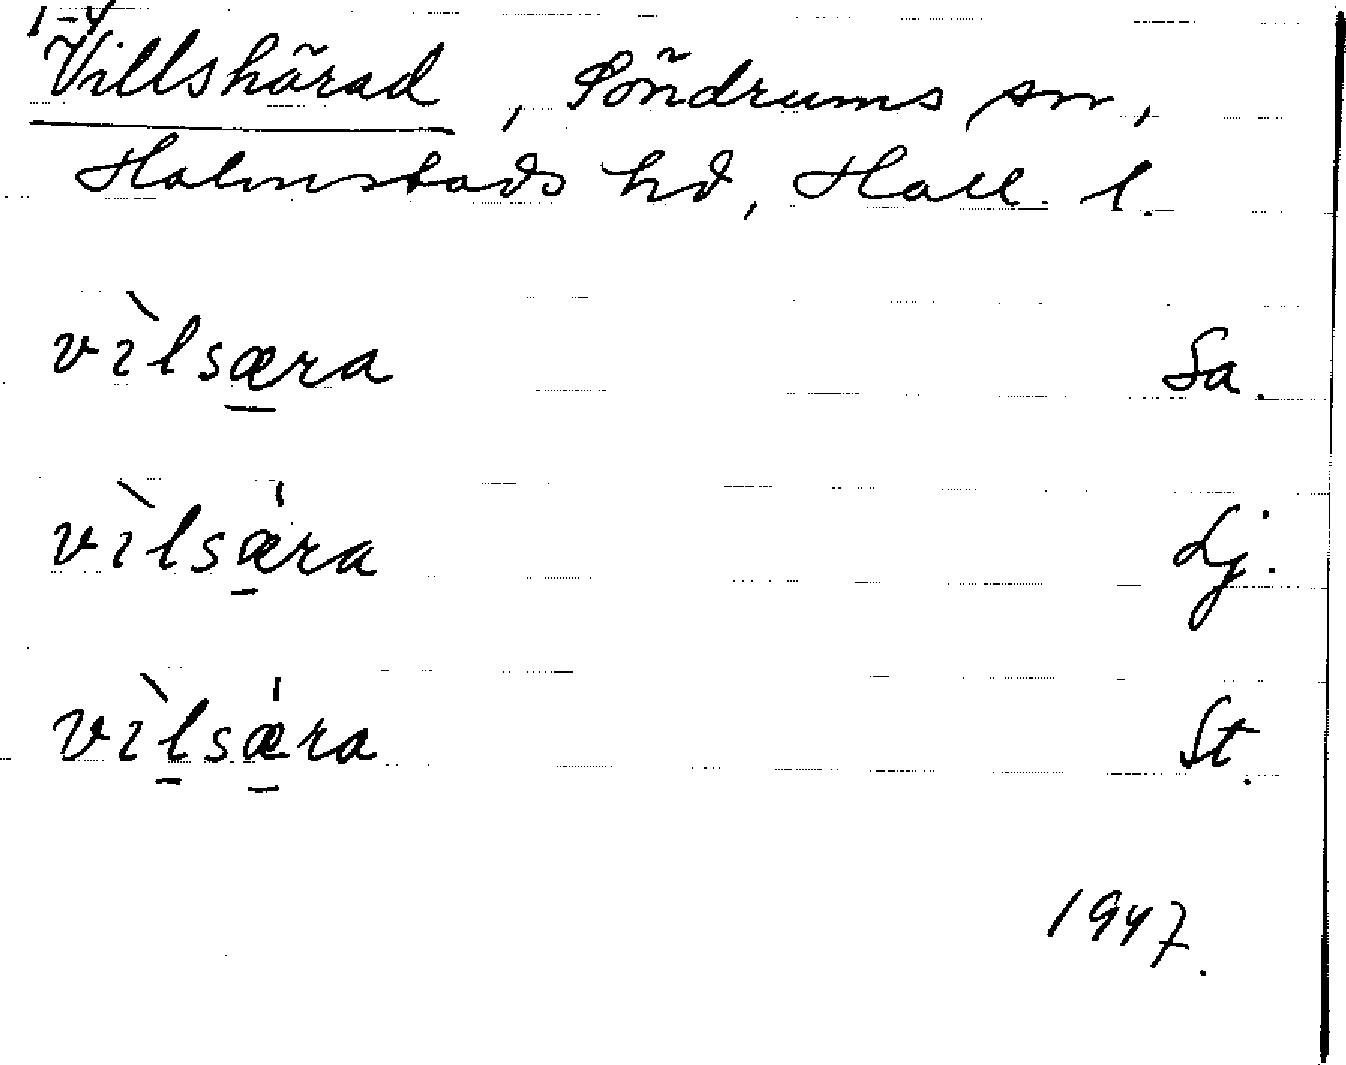 1-4
Villshärad, Söndrums sn,
Halmstads hd, Hall. l.
vìlsæra Sa.
vìlsǽra Lj.
vìlsǽra St.
1947.